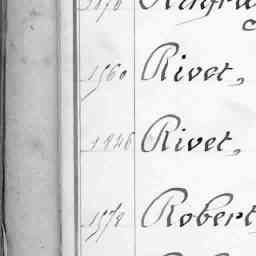 1560 Rivet,
1846 Rivet,
1578 Robert,